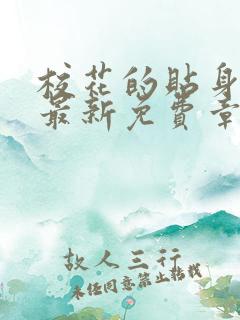 校花的贴身
最新免費章
故人三行
未经同意禁止转载